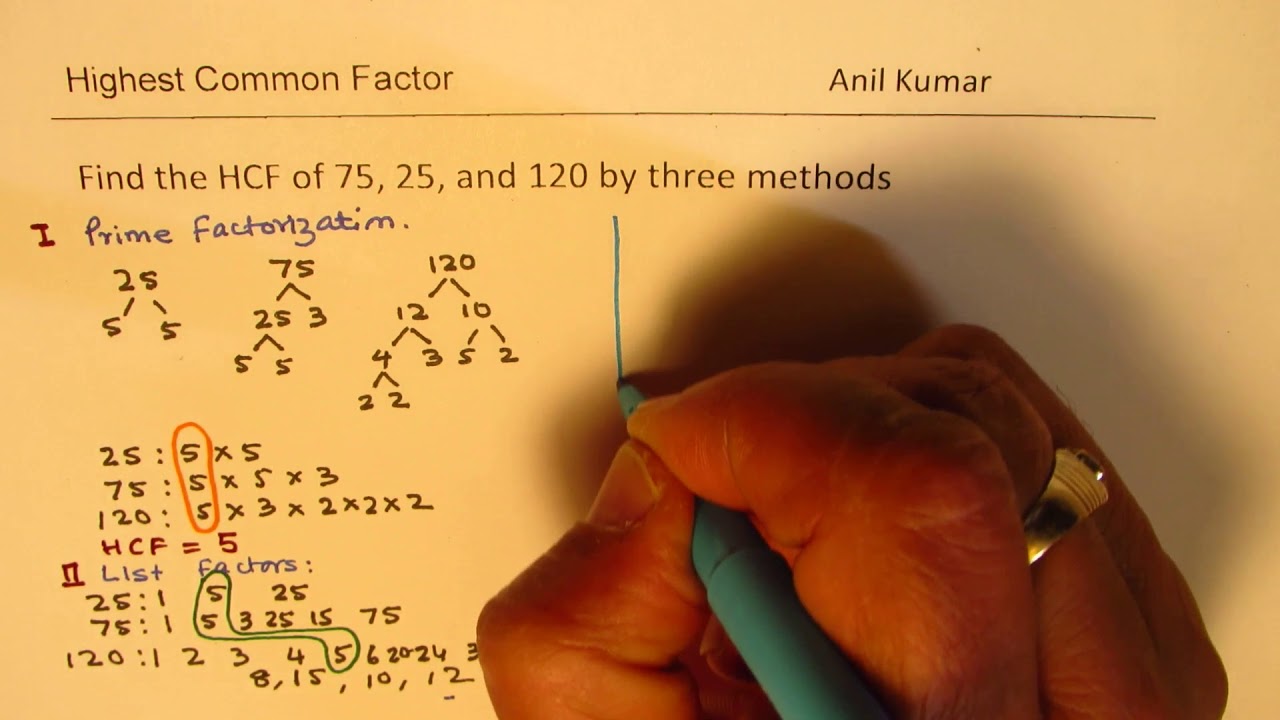 Highest Common Factor Anil Kumar
Find the HCF of 75, 25, and 120 by three methods
I Prime Factorization.
25 75 120
5 5 25 3 12 10
5 5 4 3 5 2
2 2
25 : 5 × 5
75 : 5 × 5 × 3
120 : 5 × 3 × 2 × 2 × 2
HCF = 5
II List Factors:
25 : 1 5 25
75 : 1 5 3 25 15 75
120 : 1 2 3 4 5 6 20 24 3
8, 15, 10, 12